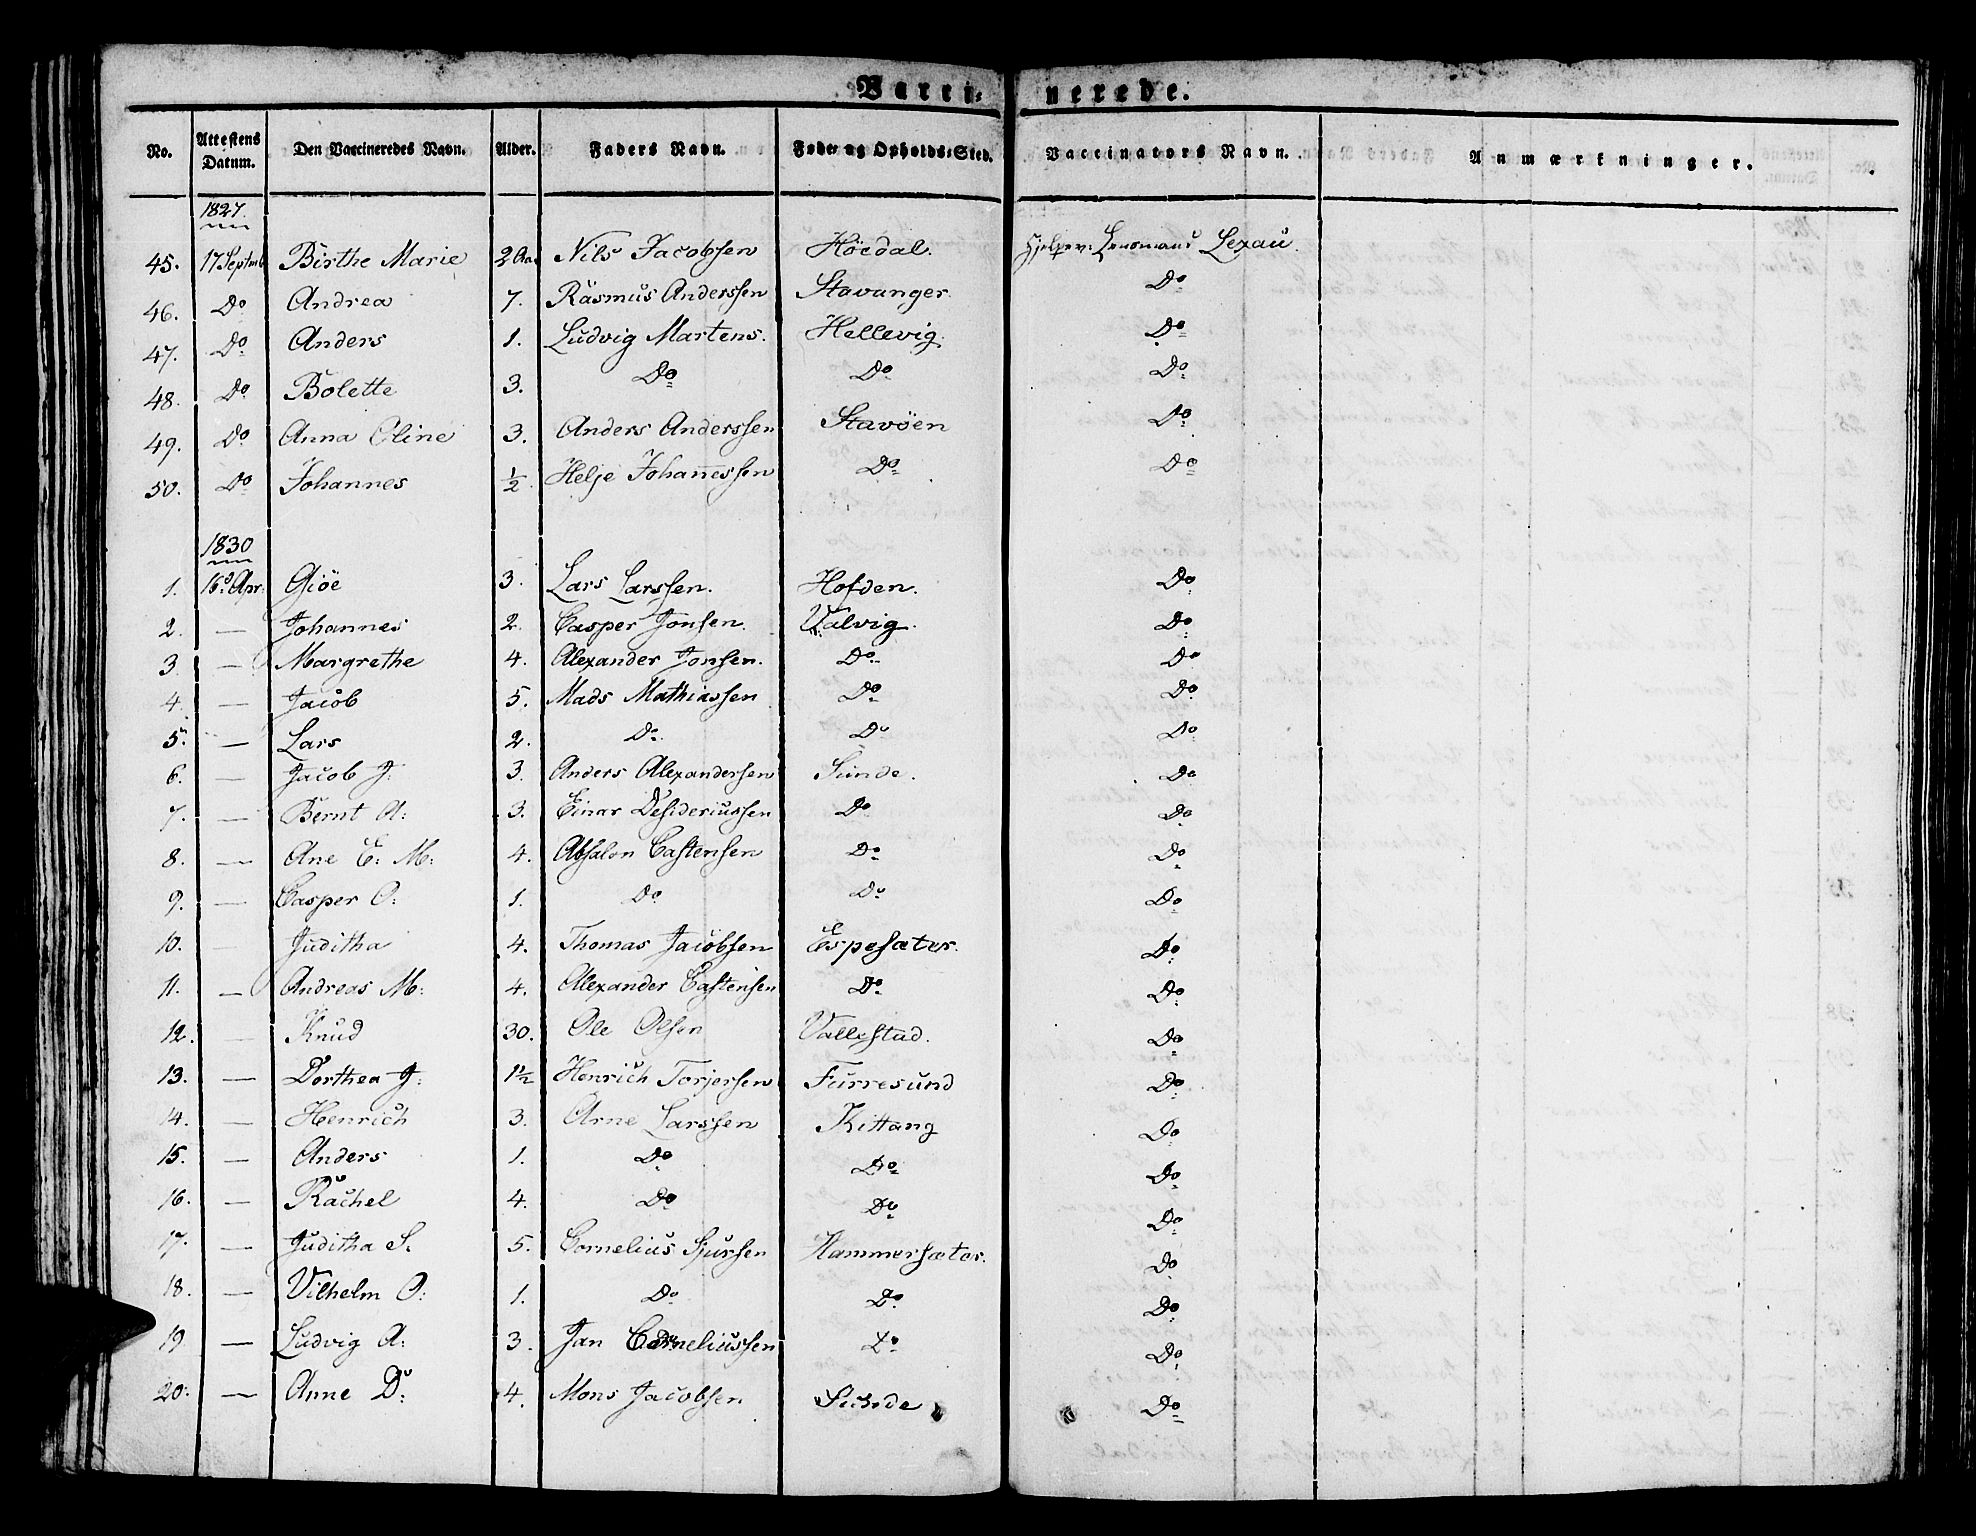 Vacci- nerede.
No. Attestens Datum. Den Vaccineredes Navn. Alder. Faders Navn. Føde- og Opholds-Sted. Vaccinators Navn. Anmærkninger.
1827.
45. 17 Septmb Birthe Marie 2 Aar Nils Jacobsen Höedal. Hjelpev: Lensmand Lexau.
46. Do Andrea 7. Rasmus Anderssen Stavanger. Do
47. Do Anders 1. Ludvig Martens. Hellevig. Do
48. Do Bolette 3. Do Do Do
49. Do Anna Oline 3. Anders Anderssen Stavöen Do
50. Do Johannes ½ Helje Johannessen Do Do
1830
1. 16d Apr: Giöe 3. Lars Larssen. Hofden. Do
2. — Johannes 2. Casper Jonsen. Valvig. Do
3. — Margrethe 4. Alexander Jonsen. Do Do
4. — Jacob 5. Mads Mathiassen Do Do
5. — Lars 2. Do Do Do
6. — Jacob J: 3. Anders Alexandersen Sunde. Do
7. — Bernt A: 3. Einar Desideriussen Do Do
8. — Ane E: M: 4. Absalon Castensen Do Do
9. — Casper O: 1. Do Do Do
10. — Juditha 4. Thomas Jacobsen Espesæter. Do
11. — Andreas M: 4. Alexander Castensen Do Do
12. — Knud 30. Ole Olsen Vallestad. Do
13. — Dorthea J: 1½ Henrich Torjersen Furresund Do
14. — Henrich 3. Arne Larssen Kittang Do
15. — Anders 1. Do Do Do
16. — Rachel 4. Do Do Do
17. — Juditha S. 5. Cornelius Sjursen Hammersæter. Do
18. — Vilhelm O: 1. Do Do Do
19. — Ludvig A: 3. Jan Corneliussen Do Do
20. — Anne D: 4. Mons Jacobsen Sunde Do